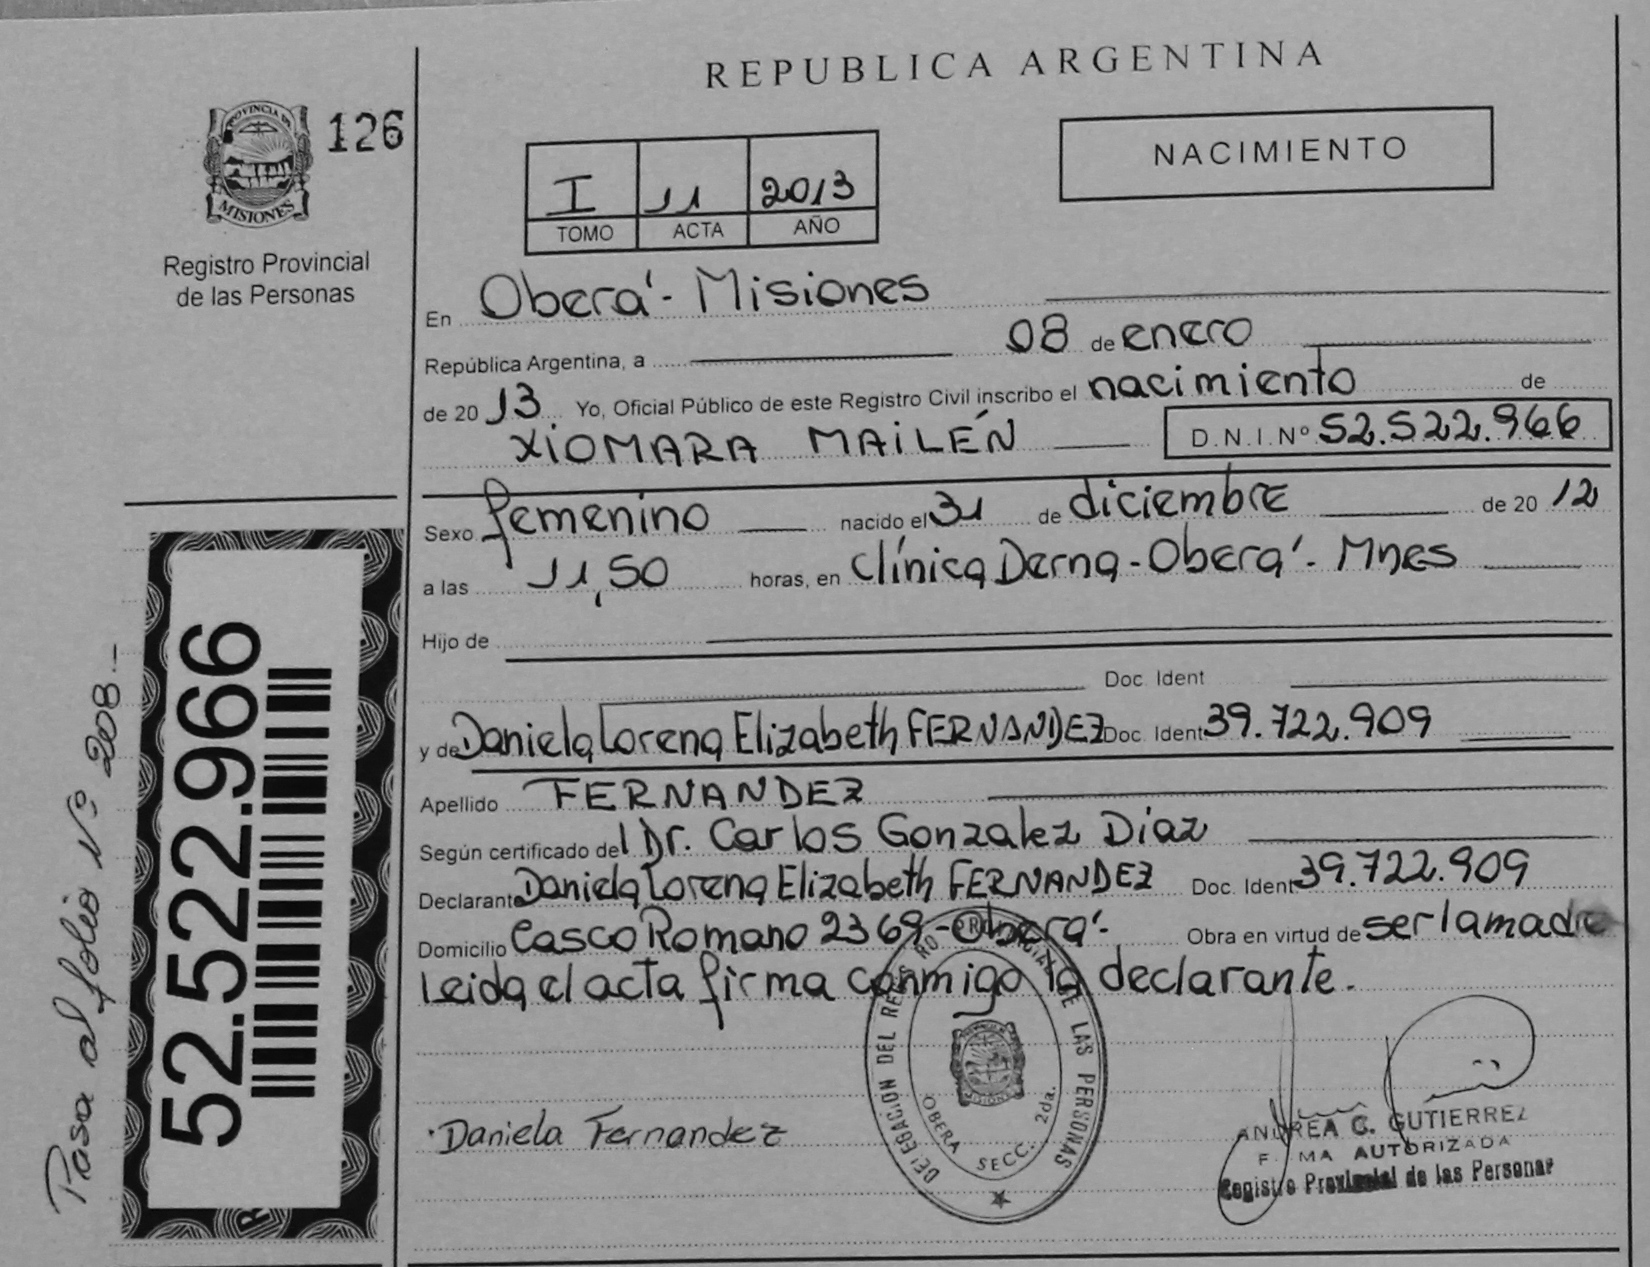 REPUBLICA ARGENTINA
PROVINCIA DE
MISIONES
126
Registro Provincial
de las Personas
I 11 2013
TOMO ACTA AÑO
NACIMIENTO
En Oberá - Misiones
República Argentina, a 08 de enero
de 2013 Yo, Oficial Público de este Registro Civil inscribo el nacimiento de
XIOMARA MAILÉN D.N.I.Nº 52.522.966
Sexo femenino nacido el 31 de diciembre de 2012
a las 11,50 horas, en Clínica Derna - Oberá - Mnes
Hijo de
Doc. Ident
y de Daniela Lorena Elizabeth FERNANDEZ Doc. Ident 39.722.909
Apellido FERNANDEZ
Según certificado del Dr. Carlos Gonzalez Díaz
Declarante Daniela Lorena Elizabeth FERNANDEZ Doc. Ident 39.722.909
Domicilio Casco Romano 2369 - Oberá - Obra en virtud de ser la madre
Leida el acta firma conmigo la declarante.
DELEGACIÓN DEL REGISTRO PROVINCIAL DE LAS PERSONAS
OBERA SECC. 2da.
MISIONES
Daniela Fernandez
ANDREA C. GUTIERREZ
FIRMA AUTORIZADA
Registro Provincial de las Personas
52.522.966
Pasa al folio Nº 208.-